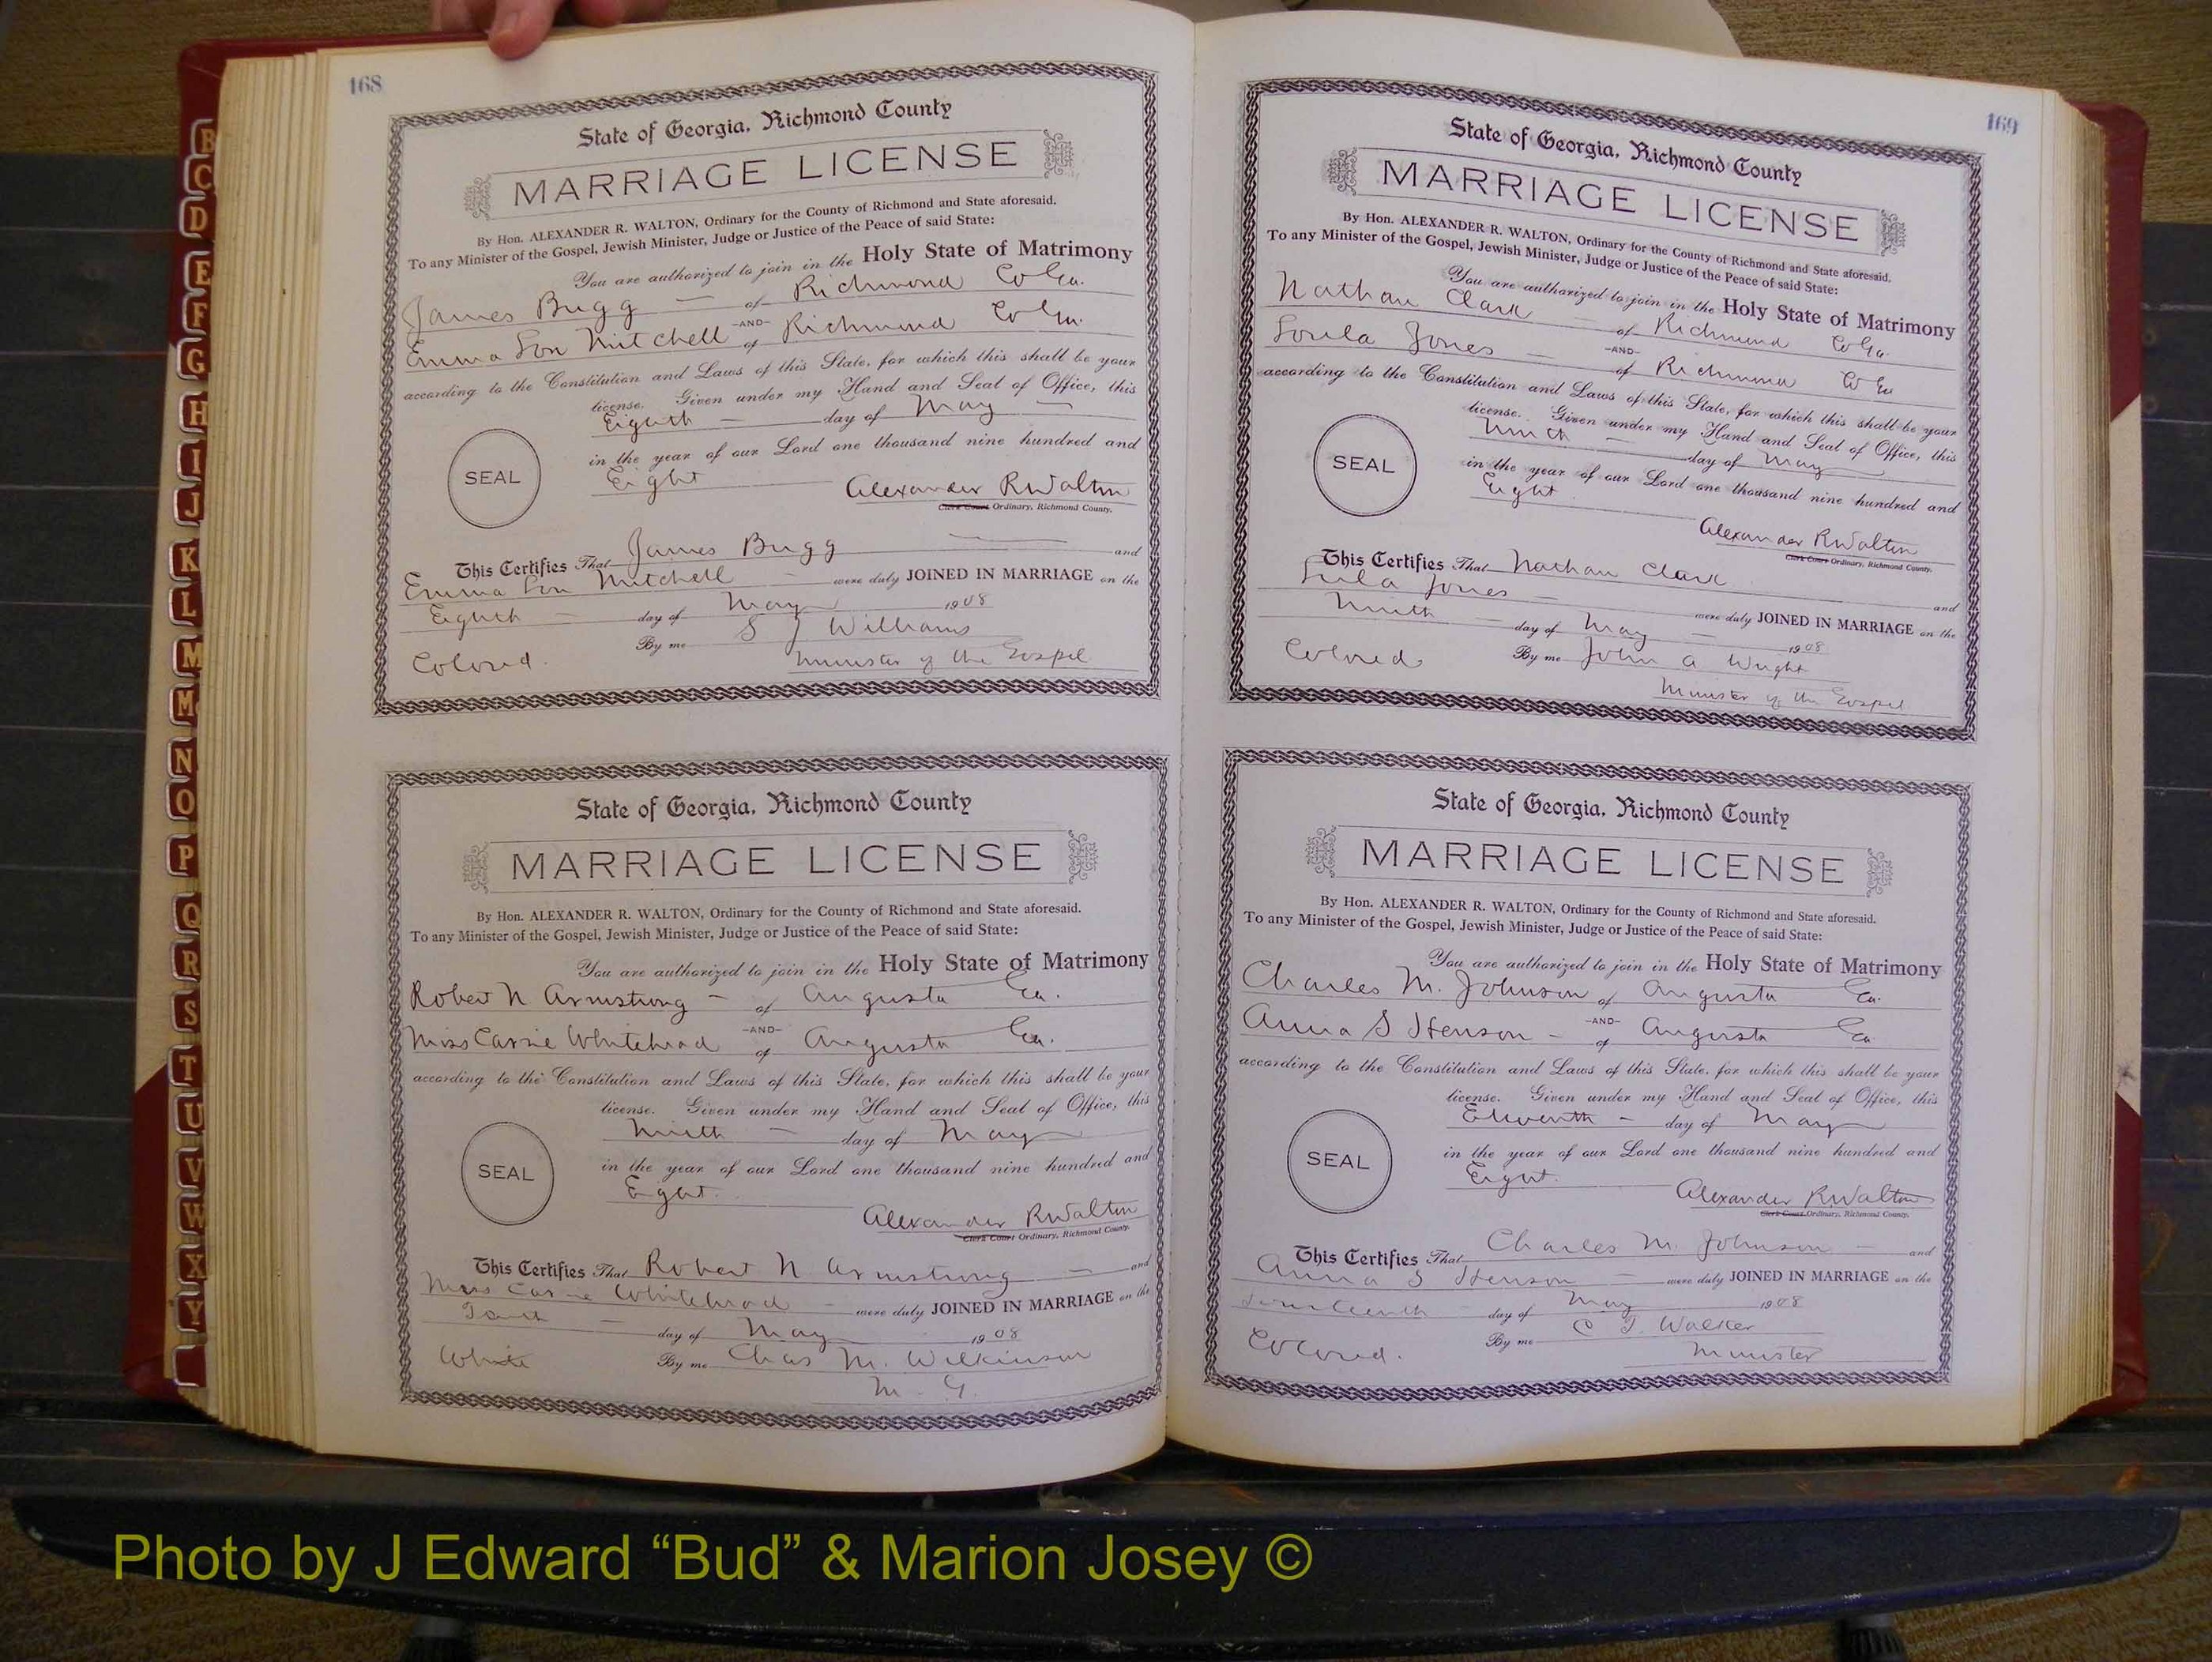 168
State of Georgia, Richmond County
MARRIAGE LICENSE
By Hon. ALEXANDER R. WALTON, Ordinary for the County of Richmond and State aforesaid.
To any Minister of the Gospel, Jewish Minister, Judge or Justice of the Peace of said State:
You are authorized to join in the Holy State of Matrimony
James Bugg — of Richmond Co Ga.
—AND—
Emma Lou Mitchell of Richmond Co Ga.
according to the Constitution and Laws of this State, for which this shall be your
license. Given under my Hand and Seal of Office, this
Eighth — day of May —
in the year of our Lord one thousand nine hundred and
Eight
SEAL
Alexander R Walton
Clerk Court Ordinary, Richmond County.
This Certifies That James Bugg — and
Emma Lou Mitchell — were duly JOINED IN MARRIAGE on the
Eighth — day of May 1908
By me S J Williams
Colored. Minister of the Gospel
State of Georgia, Richmond County
MARRIAGE LICENSE
By Hon. ALEXANDER R. WALTON, Ordinary for the County of Richmond and State aforesaid.
To any Minister of the Gospel, Jewish Minister, Judge or Justice of the Peace of said State:
You are authorized to join in the Holy State of Matrimony
Robert N Armstrong — of Augusta Ga.
—AND—
Miss Carrie Whitehead of Augusta Ga.
according to the Constitution and Laws of this State, for which this shall be your
license. Given under my Hand and Seal of Office, this
Ninth — day of May
in the year of our Lord one thousand nine hundred and
Eight.
SEAL
Alexander R Walton
Clerk Court Ordinary, Richmond County.
This Certifies That Robert N Armstrong — and
Miss Carrie Whitehead — were duly JOINED IN MARRIAGE on the
— day of May 1908
White By me Chas M. Wilkinson
M. G.
169
State of Georgia, Richmond County
MARRIAGE LICENSE
By Hon. ALEXANDER R. WALTON, Ordinary for the County of Richmond and State aforesaid.
To any Minister of the Gospel, Jewish Minister, Judge or Justice of the Peace of said State:
You are authorized to join in the Holy State of Matrimony
Nathan Clark — of Richmond Co Ga.
—AND—
Jones — of Richmond Co Ga
according to the Constitution and Laws of this State, for which this shall be your
license. Given under my Hand and Seal of Office, this
Ninth — day of May
in the year of our Lord one thousand nine hundred and
Eight
SEAL
Alexander R Walton
Clerk Court Ordinary, Richmond County.
This Certifies That Nathan Clark and
Lula Jones — were duly JOINED IN MARRIAGE on the
Ninth — day of May — 1908
Colored By me John A Wright
Minister of the Gospel
State of Georgia, Richmond County
MARRIAGE LICENSE
By Hon. ALEXANDER R. WALTON, Ordinary for the County of Richmond and State aforesaid.
To any Minister of the Gospel, Jewish Minister, Judge or Justice of the Peace of said State:
You are authorized to join in the Holy State of Matrimony
Charles M. Johnson of Augusta Ga.
—AND—
Anna S Henson — of Augusta Ga
according to the Constitution and Laws of this State, for which this shall be your
license. Given under my Hand and Seal of Office, this
Eleventh — day of May
in the year of our Lord one thousand nine hundred and
Eight.
SEAL
Alexander R Walton
Clerk Court Ordinary, Richmond County.
This Certifies That Charles M. Johnson — and
Anna S Henson — were duly JOINED IN MARRIAGE on the
Fourteenth — day of May 1908
Colored. By me C T. Walker
Minister
B
C
D
E
F
G
H
I
J
K
L
M
Mc
N
O
P
Q
R
S
T
U
V
W
X
Y
Photo by J Edward “Bud” & Marion Josey ©